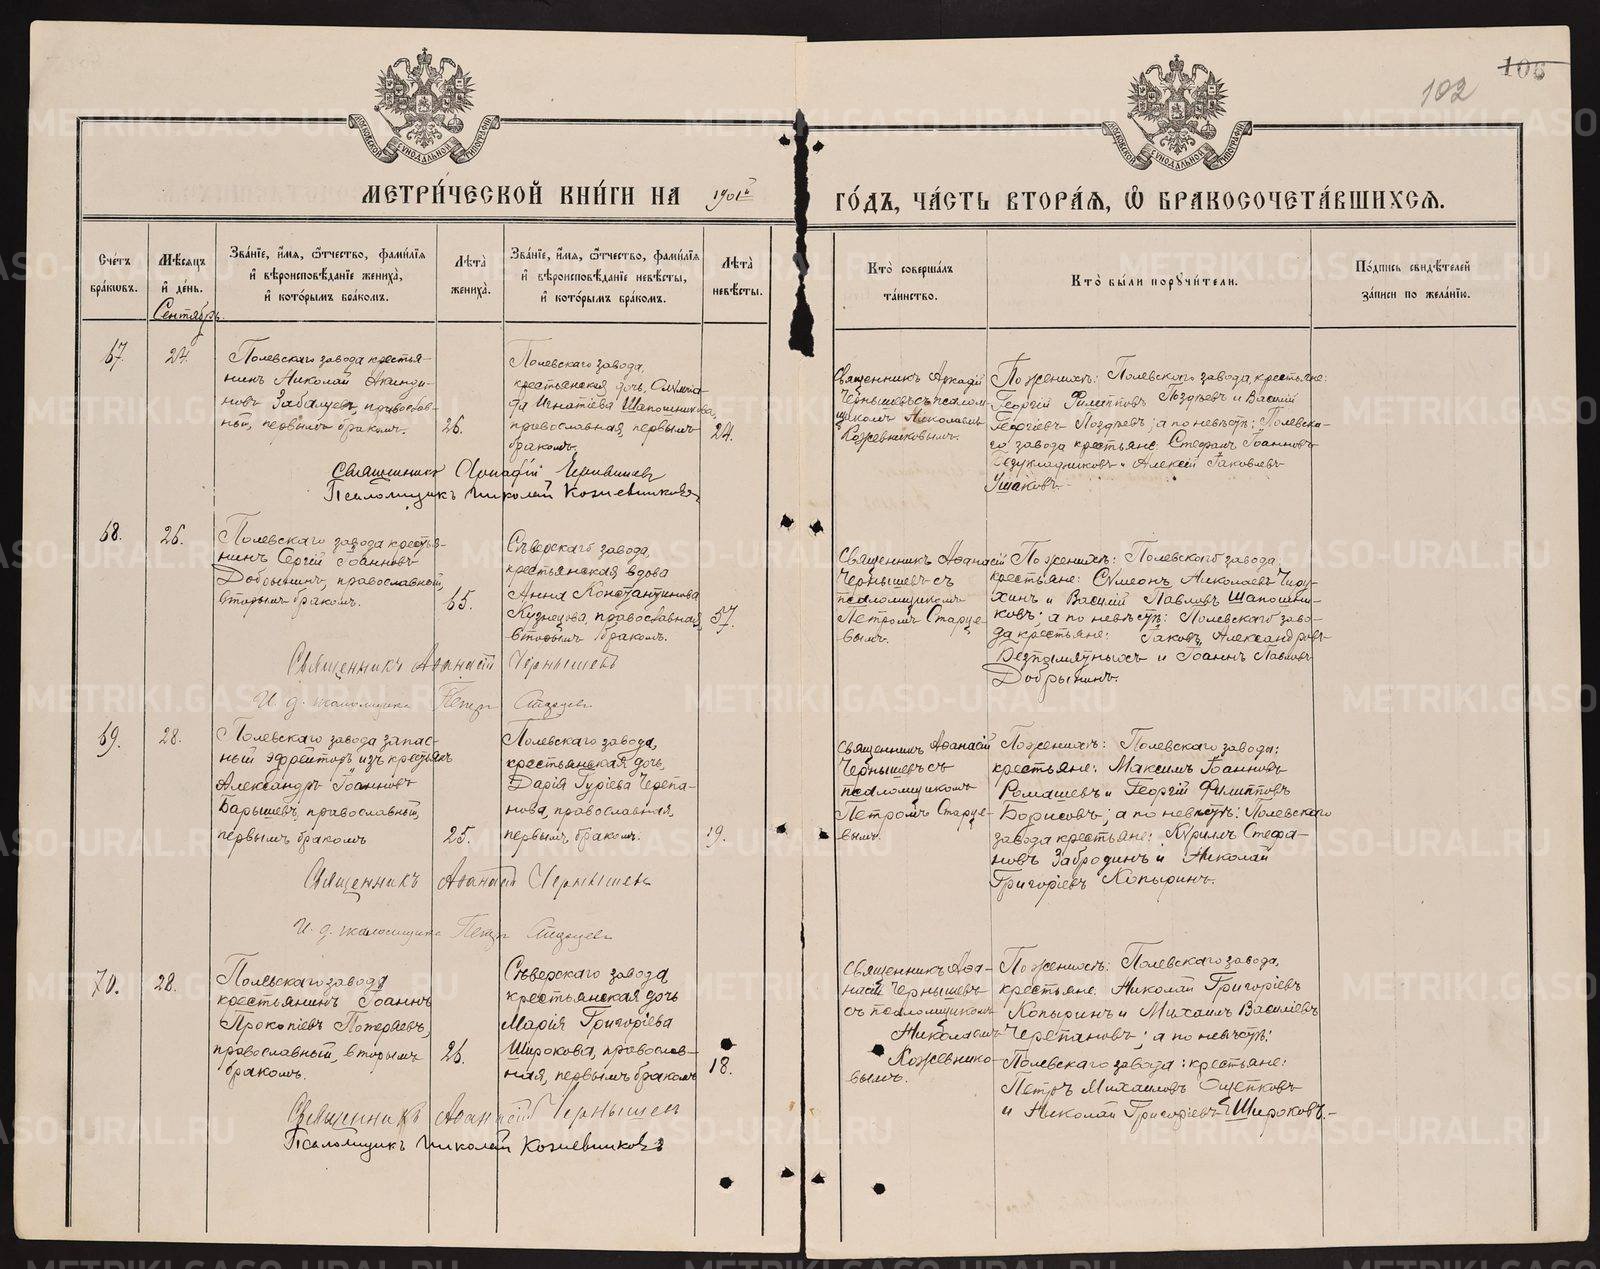 102
106
МОСКОВСКОЙ СѴНОДАЛЬНОЙ ТИПОГРАФІИ
МОСКОВСКОЙ СѴНОДАЛЬНОЙ ТИПОГРАФІИ
МЕТРИ́ЧЕСКОЙ КНИ́ГИ НА 1901й ГО́ДЪ, ЧА́СТЬ ВТОРА́Я, Ѽ БРАКОСОЧЕТА́ВШИХСЯ.
Сче́тъ бра́ковъ.
Мѣ́сяцъ и҆ де́нь.
Зва́нїе, и҆́мя, ѻ҆́тчество, фами́лїя и҆ вѣроисповѣ́данїе жениха̀, и҆ кото́рымъ бра́комъ.
Лѣта̀ жениха̀.
Зва́нїе, и҆́мя, ѻ҆́тчество, фами́лїя и҆ вѣроисповѣ́данїе невѣ́сты, и҆ кото́рымъ бра́комъ.
Лѣта̀ невѣ́сты.
Кто̀ соверша́лъ та́инство.
Кто̀ бы́ли порꙋчи́тели.
По́дпись свидѣ́телей за́писи по жела́нїю.
Сентябрь
67.
24.
Полевскаго завода крестья-
нинъ Николай Акинди-
новъ Забалуевъ, православ-
ный, первымъ бракомъ.
26.
Полевскаго завода,
крестьянская дочь,
да Игнатіева Шапошникова,
православная, первымъ
бракомъ.
24.
Священникъ Аркадій
Чернышевъ съ псалом-
щикомъ Николаемъ
Кожевниковымъ.
По женихѣ: Полевскаго завода, крестьяне:
Георгій Филипповъ Поздѣевъ и Василій
Георгіевъ Поздѣевъ; а по невѣстѣ: Полевска-
го завода крестьяне: Стефанъ Іоанновъ
Безукладниковъ и Алексій Іаковлевъ
Ушаковъ.
Священникъ Аркадій Чернышевъ
Псаломщикъ Николай Кожевниковъ
68.
26.
Полевскаго завода крестья-
нинъ Сергій Іоанновъ
Добрынинъ, православный,
вторымъ бракомъ.
65.
Сѣверскаго завода,
крестьянская вдова
Анна Константинова
Кузнецова, православная,
вторымъ бракомъ.
57.
Священникъ Аѳанасій
Чернышевъ съ
псаломщикомъ
Петромъ Старце-
вымъ.
По женихѣ: Полевскаго завода
крестьяне: Сѵмеонъ Николаевъ Чиру-
хинъ и Василій Павловъ Шапошни-
ковъ; а по невѣстѣ: Полевскаго заво-
да крестьяне: Іаковъ Александровъ
Безпамятныхъ и Іоаннъ Павловъ
Добрынинъ.
Священникъ Аѳанасій Чернышевъ
И. д. псаломщика Петръ Старцевъ
69.
28.
Полевскаго завода запас-
ный ефрейторъ изъ крестьянъ
Александръ Іоанновъ
Барышевъ, православный,
первымъ бракомъ
25.
Полевскаго завода,
крестьянская дочь,
Дарія Гуріева Черепа-
нова, православная,
первымъ бракомъ.
19.
Священникъ Аѳанасій
Чернышевъ съ
псаломщикомъ
Петромъ Старце-
вымъ.
По женихѣ: Полевскаго завода:
крестьяне: Максимъ Іоанновъ
Ромашевъ и Георгій Филипповъ
Борисовъ; а по невѣстѣ: Полевскаго
завода крестьяне: Кѵриллъ Стефа-
новъ Забродинъ и Николай
Григоріевъ Копыринъ.
Священникъ Аѳанасій Чернышевъ
И. д. псаломщика Петръ Старцевъ
70.
28.
Полевскаго завода
крестьянинъ Іоаннъ
Прокопіевъ Потеряевъ,
православный, вторымъ
бракомъ.
26.
Сѣверскаго завода
крестьянская дочь
Марія Григоріева
Широкова, православ-
ная, первымъ бракомъ
18.
Священникъ Аѳа-
насій Чернышевъ
съ псаломщикомъ
Николаемъ
Кожевнико-
вымъ.
По женихѣ: Полевскаго завода,
крестьяне: Николай Григоріевъ
Копыринъ и Михаилъ Василіевъ
Черепановъ; а по невѣстѣ:
Полевскаго завода: крестьяне:
Петръ Михаиловъ Ощепковъ
и Николай Григоріевъ Широковъ.
Священникъ Аѳанасій Чернышевъ
Псаломщикъ Николай Кожевниковъ
METRIKI.GASO-URAL.RU